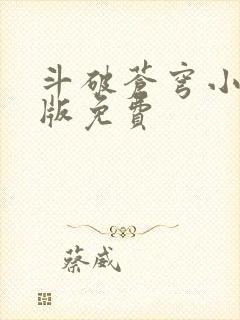 斗破苍穹小
版免費
蔡威